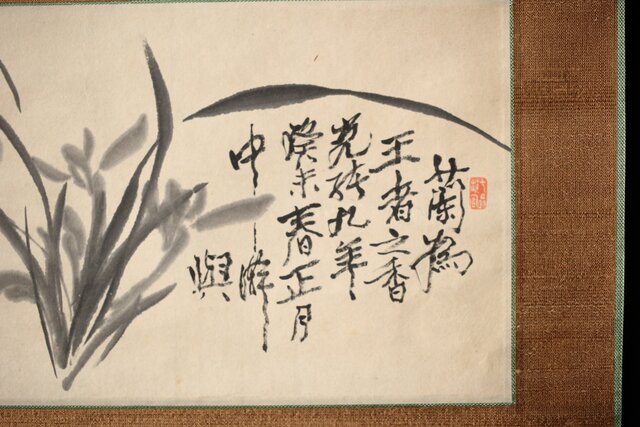 蘭為
王者之香
光緒九年
癸未春正月
中